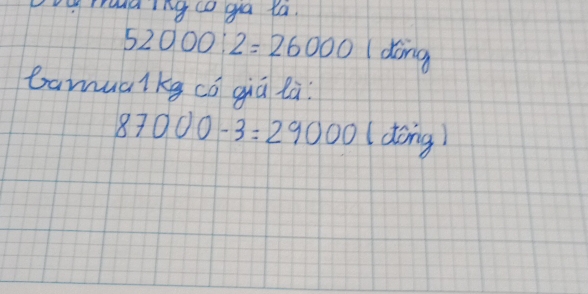 mua 1kg có giá là.
52000:2=26000 (đồng
Cam mua 1kg có giá là:
87000-3=29000 (đồng)